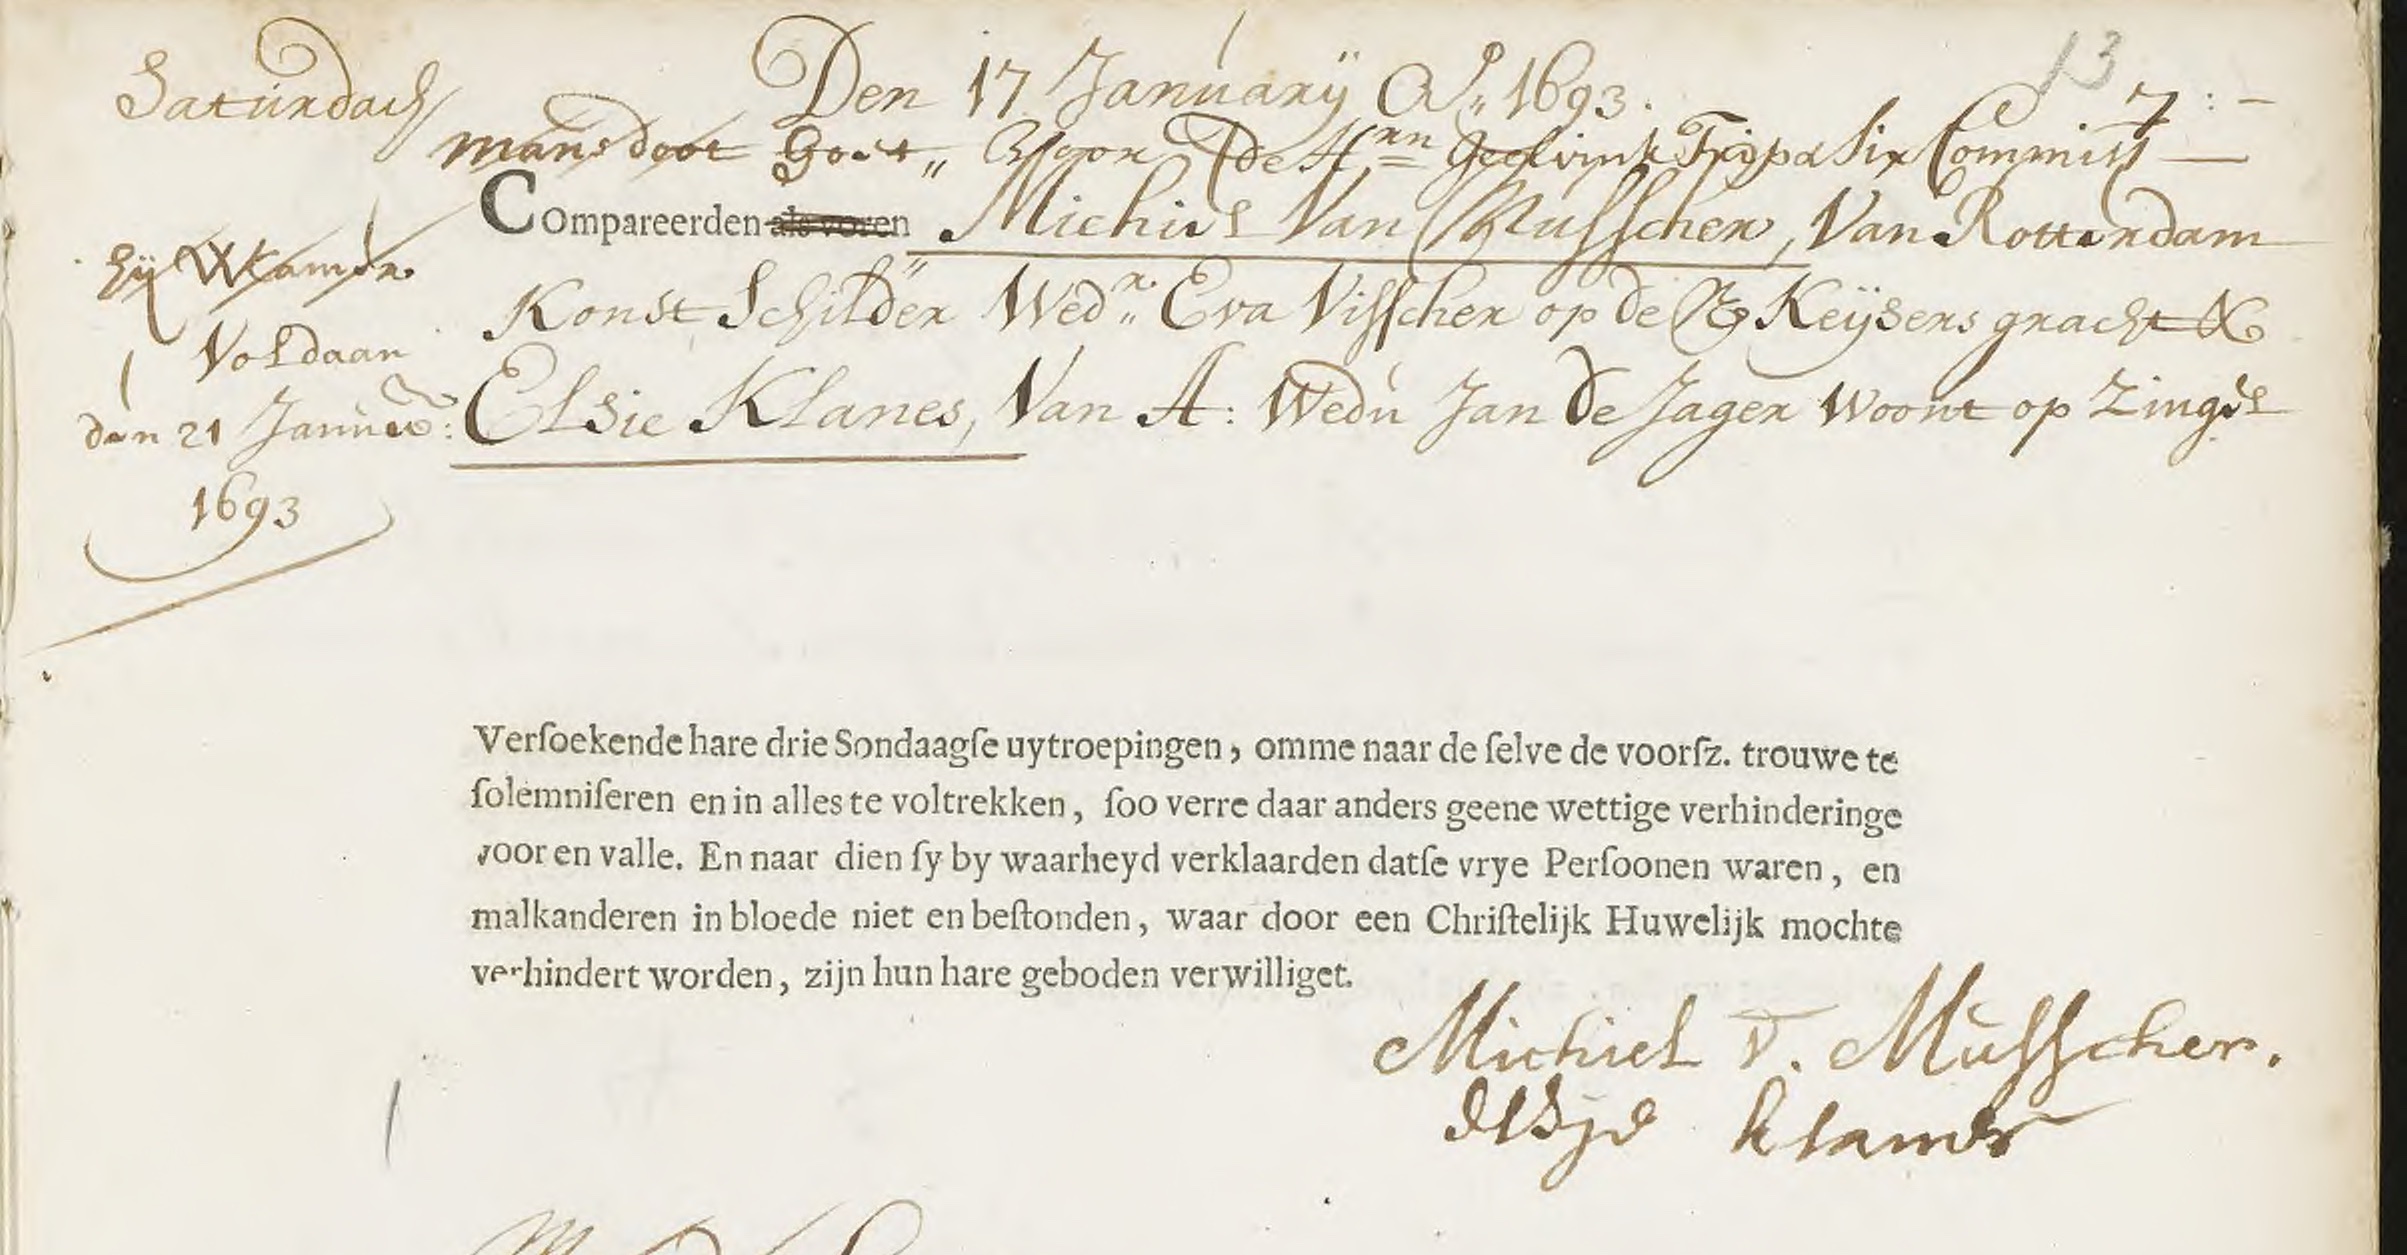 13
Saturdach Den 17 January Ao 1693. 7:-
mans doot goet Voor de Hrn Geelvink Trip & Six Commiss
Compareerden als voren Michiel Van Musscher, Van Rotterdam
hij WKamer Konst Schilder Wedr Eva Visscher op de Keysers gracht &
Voldaan
den 21 Januw: Elsie Klanes, Van A: Wedu Jan de Jager Woont op Zingel
1693
Verſoekende hare drie Sondaagſe uytroepingen, omme naar de ſelve de voorſz. trouwe te
ſolemniſeren en in alles te voltrekken, ſoo verre daar anders geene wettige verhinderinge
voor en valle. En naar dien ſy by waarheyd verklaarden datſe vrye Perſoonen waren, en
malkanderen in bloede niet en beſtonden, waar door een Chriſtelijk Huwelijk mochte
verhindert worden, zijn hun hare geboden verwilliget.
Michiel v. Musscher.
Elsje klanes